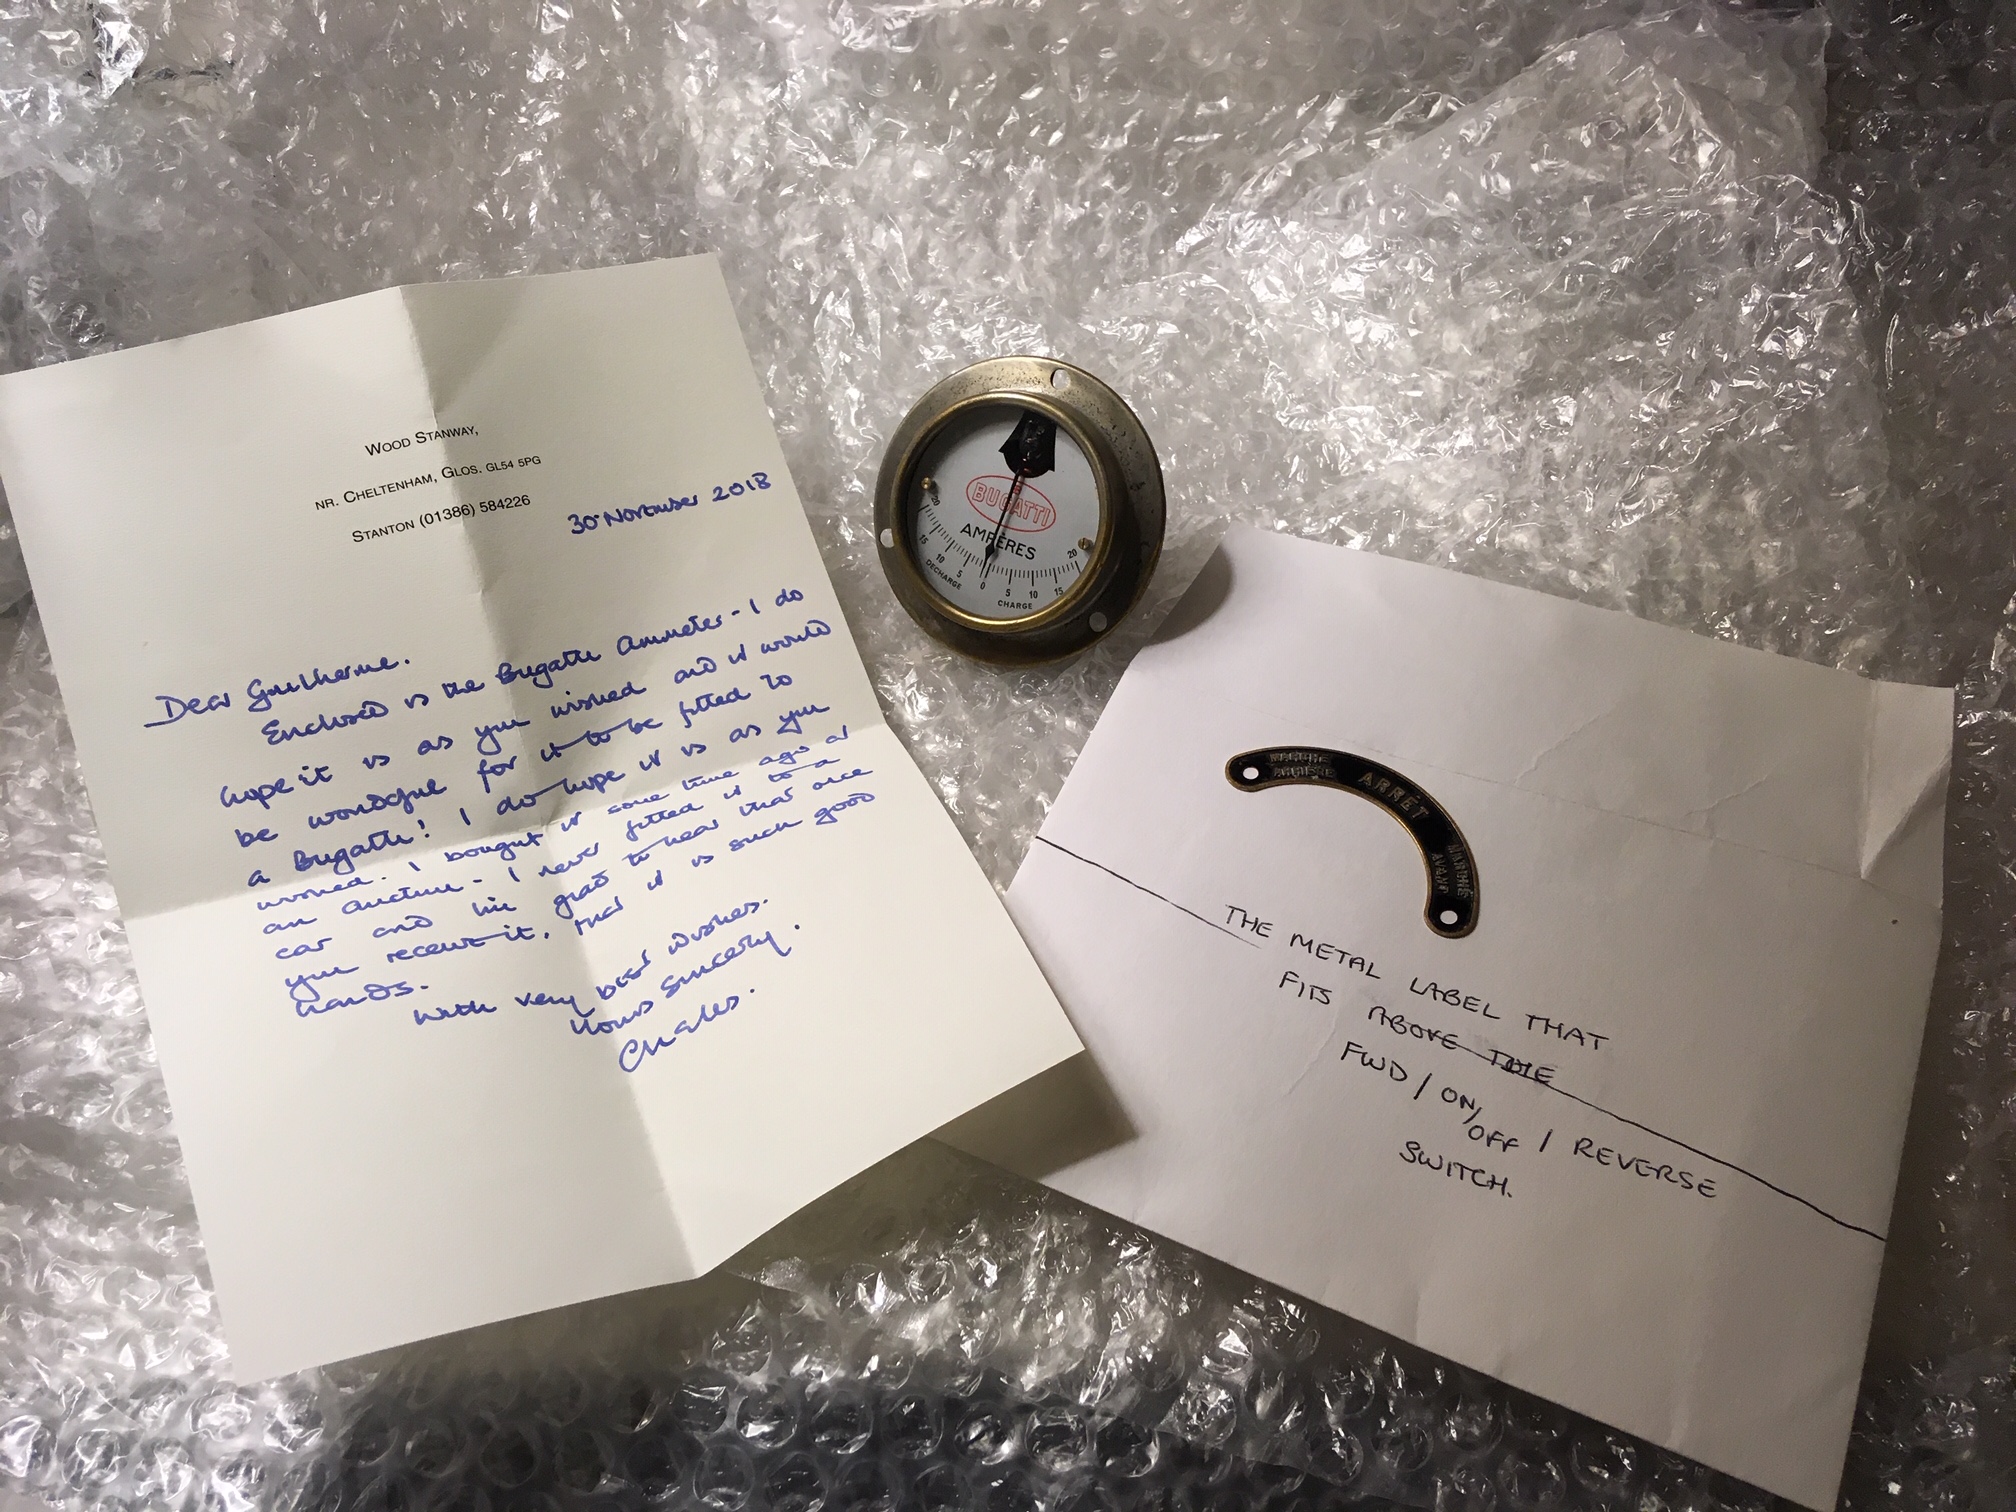 WOOD STANWAY,
NR. CHELTENHAM, GLOS. GL54 5PG
STANTON (01386) 584226
30 November 2018
Dear Guilherme.
Enclosed is the Bugatti Ammeter - I do
hope it is as you wished and it would
be wonderful for it to be fitted to
a Bugatti! I do hope it is as you
wished. I bought it some time ago at
an auction - I never fitted it to a
car and am glad to hear that once
you receive it, that it is such good
hands.
With very best wishes.
Yours sincerely.
Charles.
BUGATTI
AMPÈRES
20 15 10 5 0 5 10 15 20
DECHARGE
CHARGE
MARCHE
ARRIERE
ARRÊT
MARCHE
AVANT
THE METAL LABEL THAT
FITS ABOVE THE
FWD / ON/OFF / REVERSE
SWITCH.